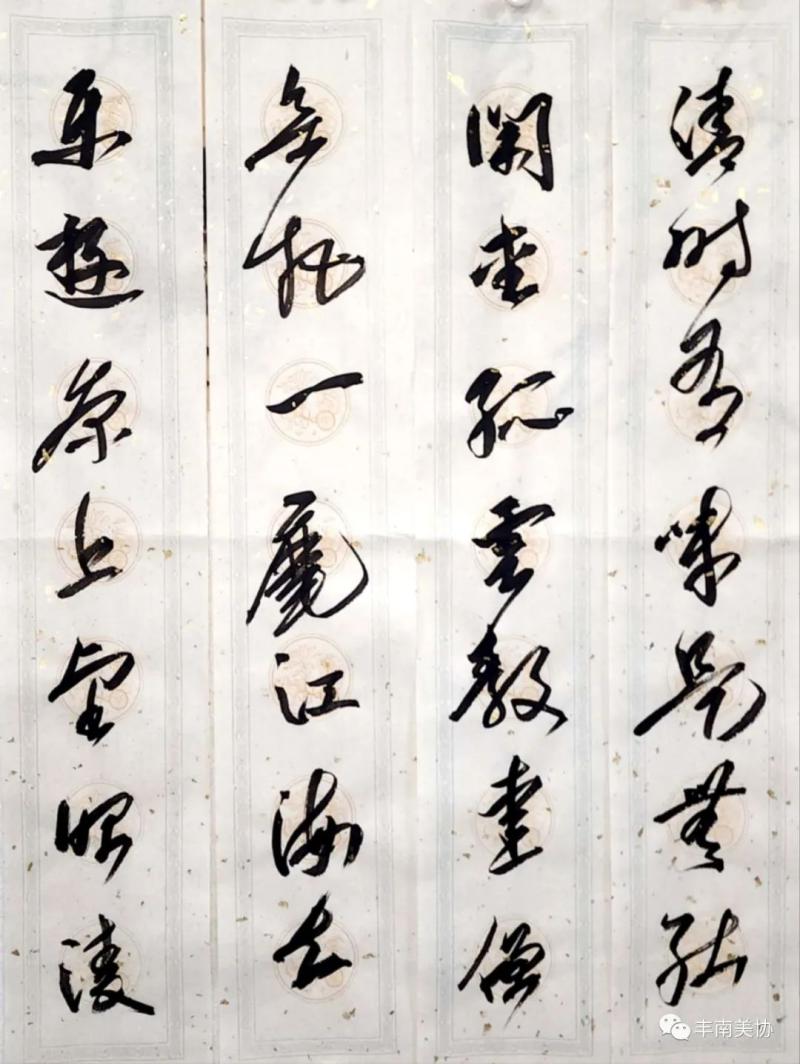 清时有味是無能
闲爱孤雲静爱僧
欲把一麾江海去
乐遊原上望昭陵
丰南美协